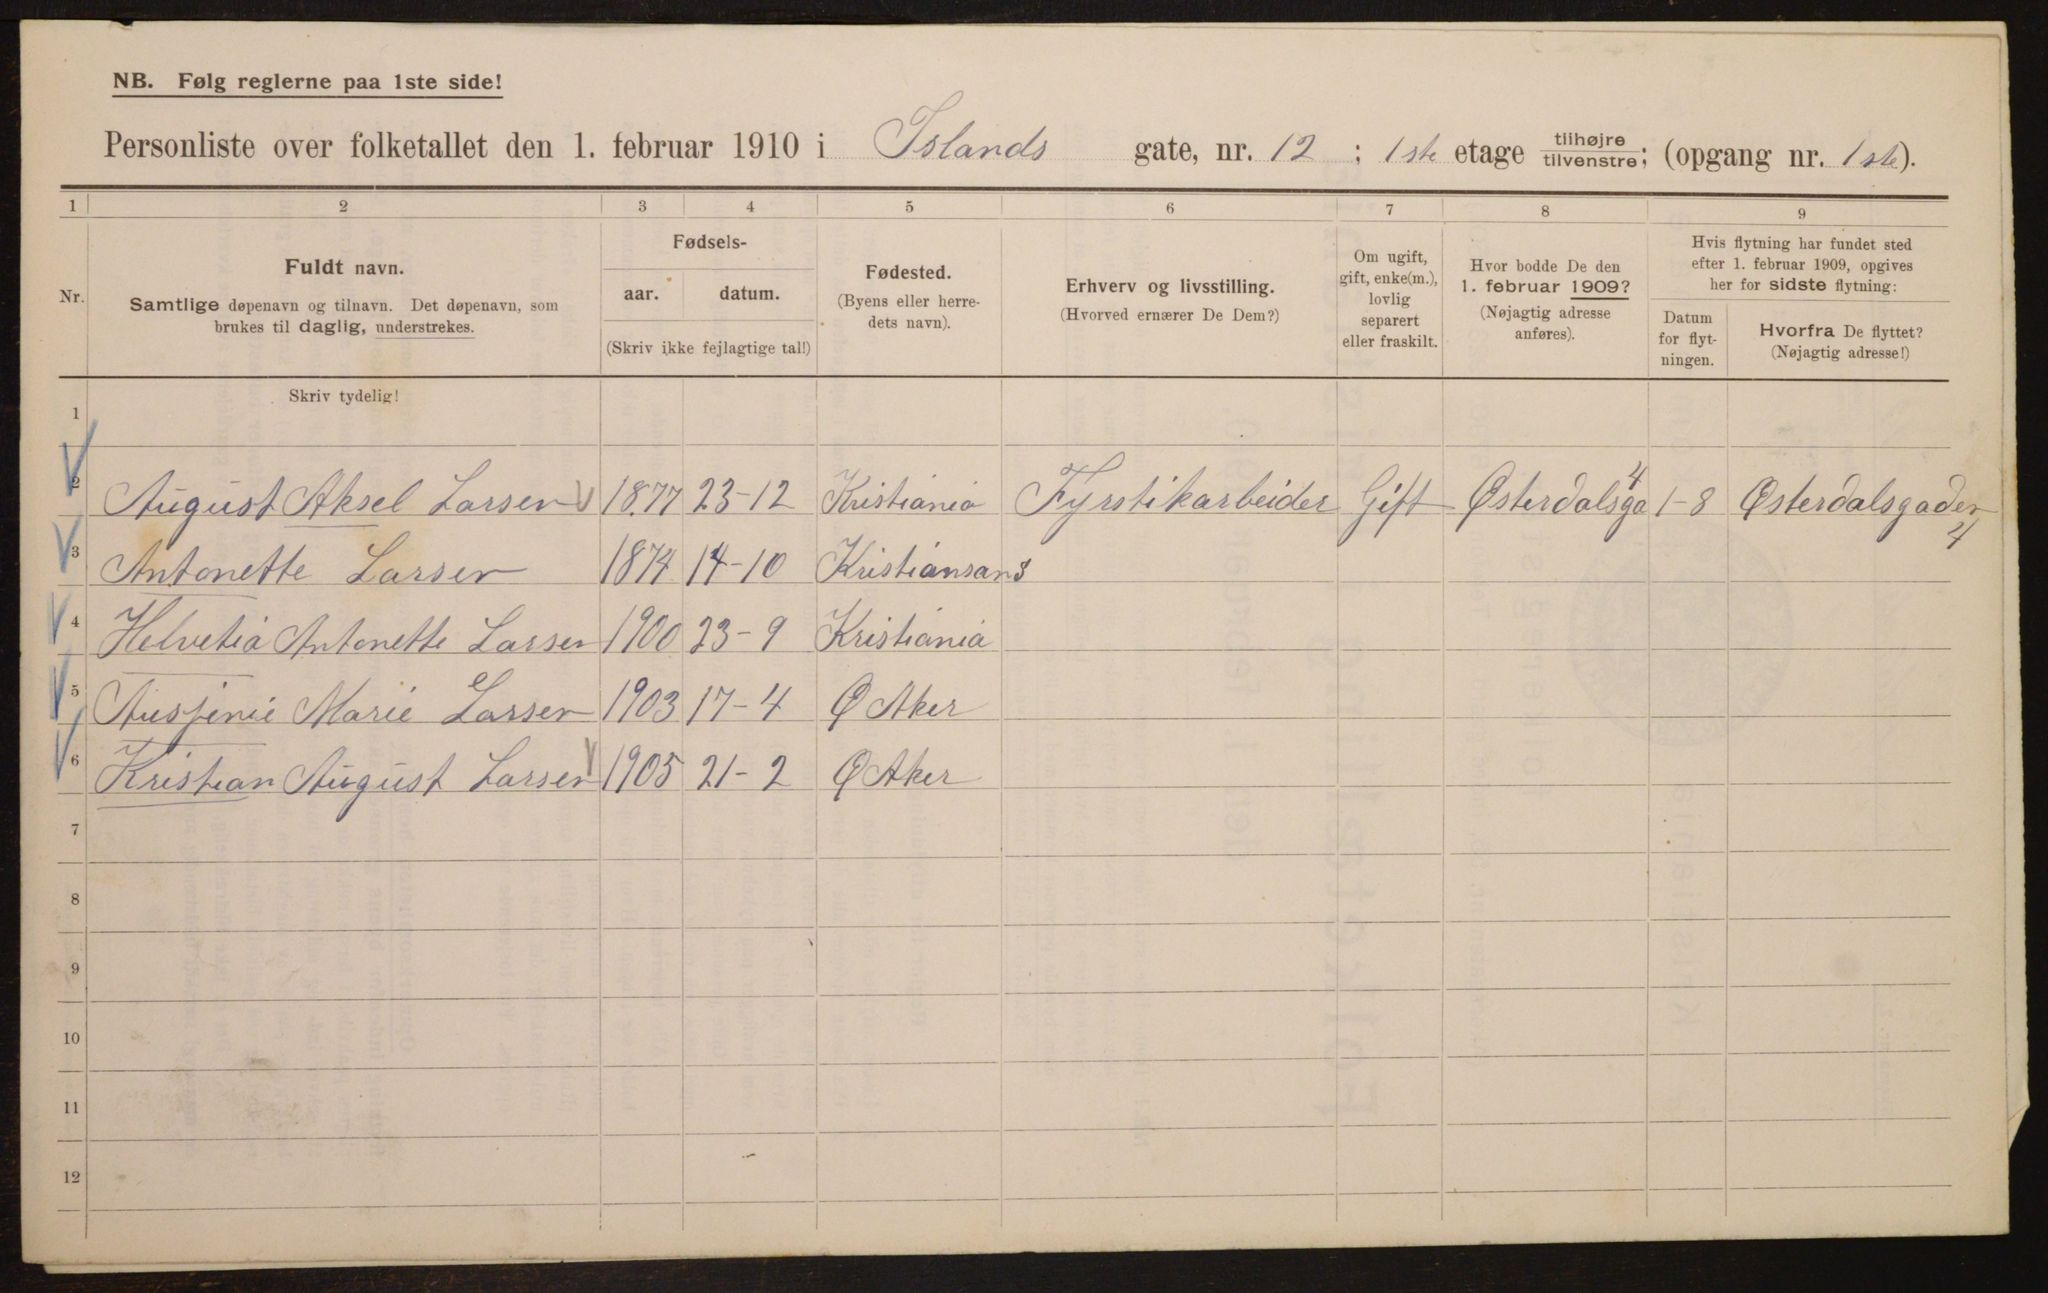 NB. Følg reglerne paa 1ste side!
Personliste over folketallet den 1. februar 1910 i Islands gate, nr. 12 ; 1ste etage tilhøjre tilvenstre; (opgang nr. 1ste).
1 2 3 4 5 6 7 8 9
Nr.
Fuldt navn.
Samtlige døpenavn og tilnavn. Det døpenavn, som
brukes til daglig, understrekes.
Fødsels-
aar. datum.
(Skriv ikke fejlagtige tal!)
Fødested.
(Byens eller herre-
dets navn).
Erhverv og livsstilling.
(Hvorved ernærer De Dem?)
Om ugift,
gift, enke(m.),
lovlig
separert
eller fraskilt.
Hvor bodde De den
1. februar 1909?
(Nøjagtig adresse
anføres).
Hvis flytning har fundet sted
efter 1. februar 1909, opgives
her for sidste flytning:
Datum
for flyt-
ningen.
Hvorfra De flyttet?
(Nøjagtig adresse!)
Skriv tydelig!
1
2 August Aksel Larsen 1877 23-12 Kristiania Fyrstikarbeider Gift Østerdalsga 4 1-8 Østerdalsgaden 4
3 Antonette Larsen 1874 14-10 Kristiansans
4 Helvetia Antonette Larsen 1900 23-9 Kristiania
5 Marie Larsen 1903 17-4 Ø Aker
6 Kristian August Larsen 1905 21-2 Ø Aker
7
8
9
10
11
12